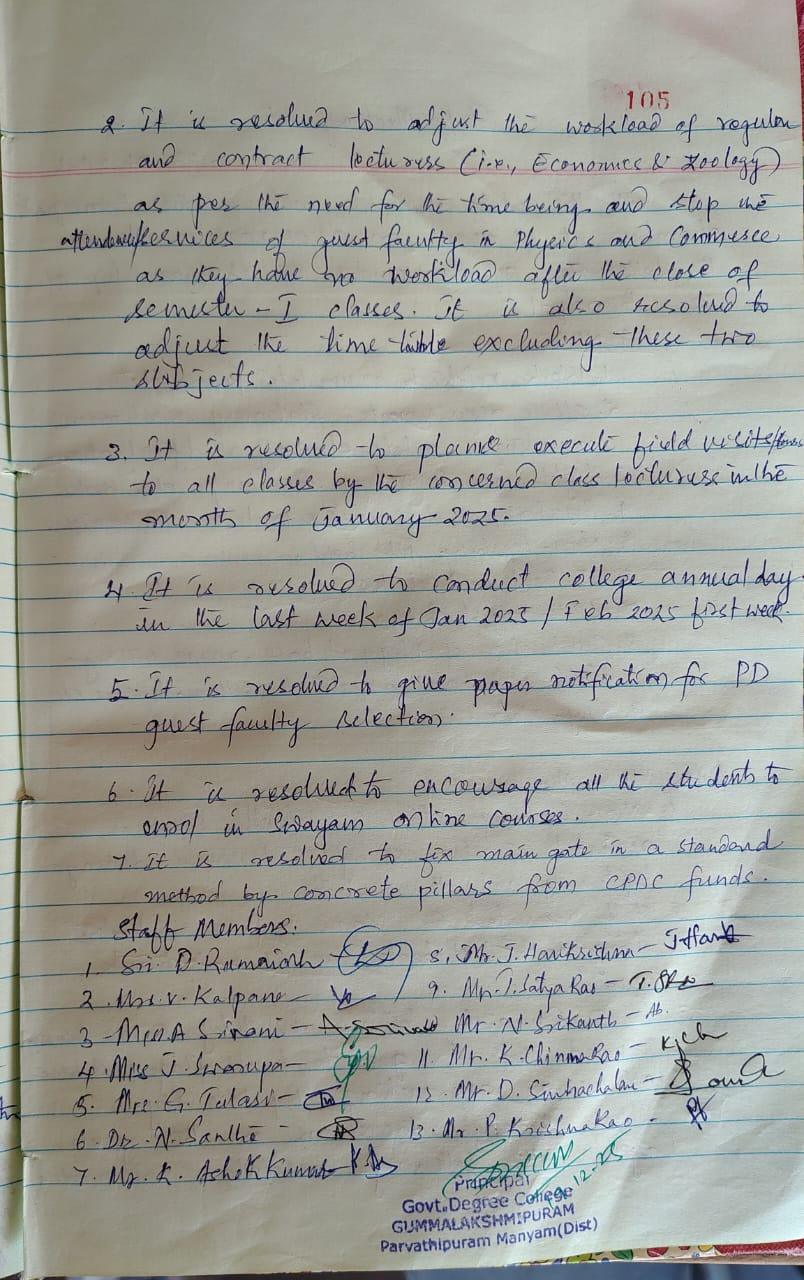 105
2. It is resolved to adjust the workload of regular
and contract lecturers (i.e., Economics & Zoology)
as per the need for the time being and stop the
services of guest faculty in Physics and Commerce
as they have no workload after the close of
semester - I classes. It is also resolved to
adjust the time-table excluding these two
subjects.
3. It is resolved to plan execute field visits
to all classes by the concerned class lecturers in the
month of January 2025.
4. It is resolved to conduct college annual day
in the last week of Jan 2025 / Feb 2025 first week.
5. It is resolved to give paper notification for PD
guest faculty selection.
6. It is resolved to encourage all the students to
enrol in Swayam online courses.
7. It is resolved to fix main gate in a standard
method by concrete pillars from CPDC funds.
Staff Members.
1. Sri. D. Ramaiah
2. Mrs. V. Kalpana
3. A Sirani
4. Miss J. Swarupa
5. G. Tulasi
6. Dr. N. Santhi
7. Mr. K. Ashok Kumar
8. Mr. J. Harikrishna
9. Mr. T. Satya Rao
Mr. N. Srikanth
11. Mr. K. Chinna Rao
12. Mr. D. Simhachalam
13. Mr. P. Krishna Rao
Principal
Govt. Degree College
GUMMALAKSHMIPURAM
Parvathipuram Manyam(Dist)